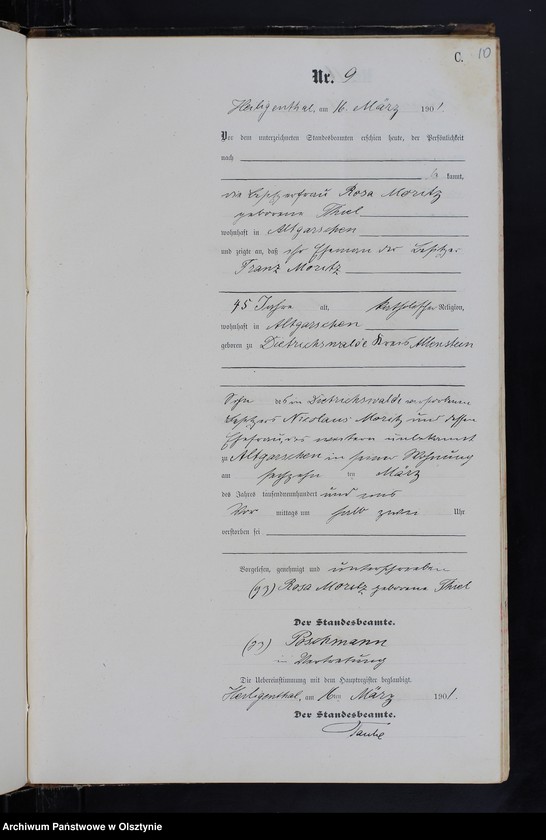 C. 10
Nr. 9
Heiligenthal, am 16. März 1901.
Vor dem unterzeichneten Standesbeamten erschien heute, der Persönlichkeit
nach
be kannt,
die Besitzerfrau Rosa Moritz
geborene Thiel
wohnhaft in Altgarschen
und zeigte an, daß ihr Ehemann der Besitzer
Franz Moritz
45 Jahre alt, katholischer Religion,
wohnhaft in Altgarschen
geboren zu Dietrichswalde Kreis Allenstein
Sohn des in Dietrichswalde verstorbenen
Besitzers Nicolaus Moritz und dessen
Ehefrau, des weiteren unbekannt
zu Altgarschen in seiner Wohnung
am sechzehn ten März
des Jahres tausendneunhundert und eins
Vor mittags um halb zwei Uhr
verstorben sei
Vorgelesen, genehmigt und unterschrieben
(gz) Rosa Moritz geborene Thiel
Der Standesbeamte.
(gz) Poschmann
in Vertretung
Die Uebereinstimmung mit dem Hauptregister beglaubigt.
Heiligenthal, am 16ten März 1901.
Der Standesbeamte.
Archiwum Państwowe w Olsztynie